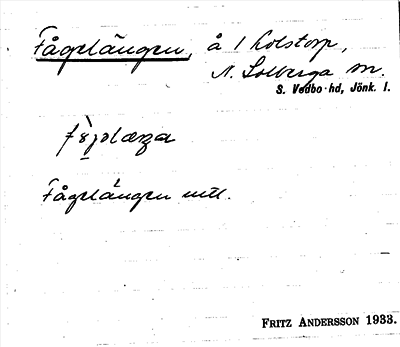 Fågelängen, å 1 Kolstorp,
N. Solberga sn.
S. Vedbo hd, Jönk. l.
Fågelängen utt.
FRITZ ANDERSSON 1933.